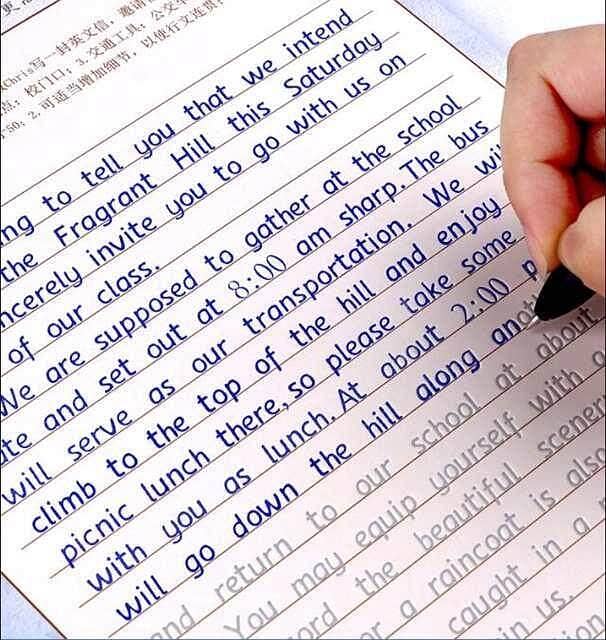 Chris写一封英文信,邀请
点:校门口;3.交通工具:公交车
2.可适当增加细节,以使行文连贯;
to tell you that we intend
the Fragrant Hill this Saturday
invite you to go with us on
of our class.
We are supposed to gather at the school
and set out at 8:00 am sharp. The bus
will serve as our transportation. We
climb to the top of the hill and enjoy
picnic lunch there, so please take some
with you as lunch. At about 2:00
will go down the hill along
and return to our school at about
You may equip yourself with a
the beautiful
a raincoat is also
caught in a
in us.